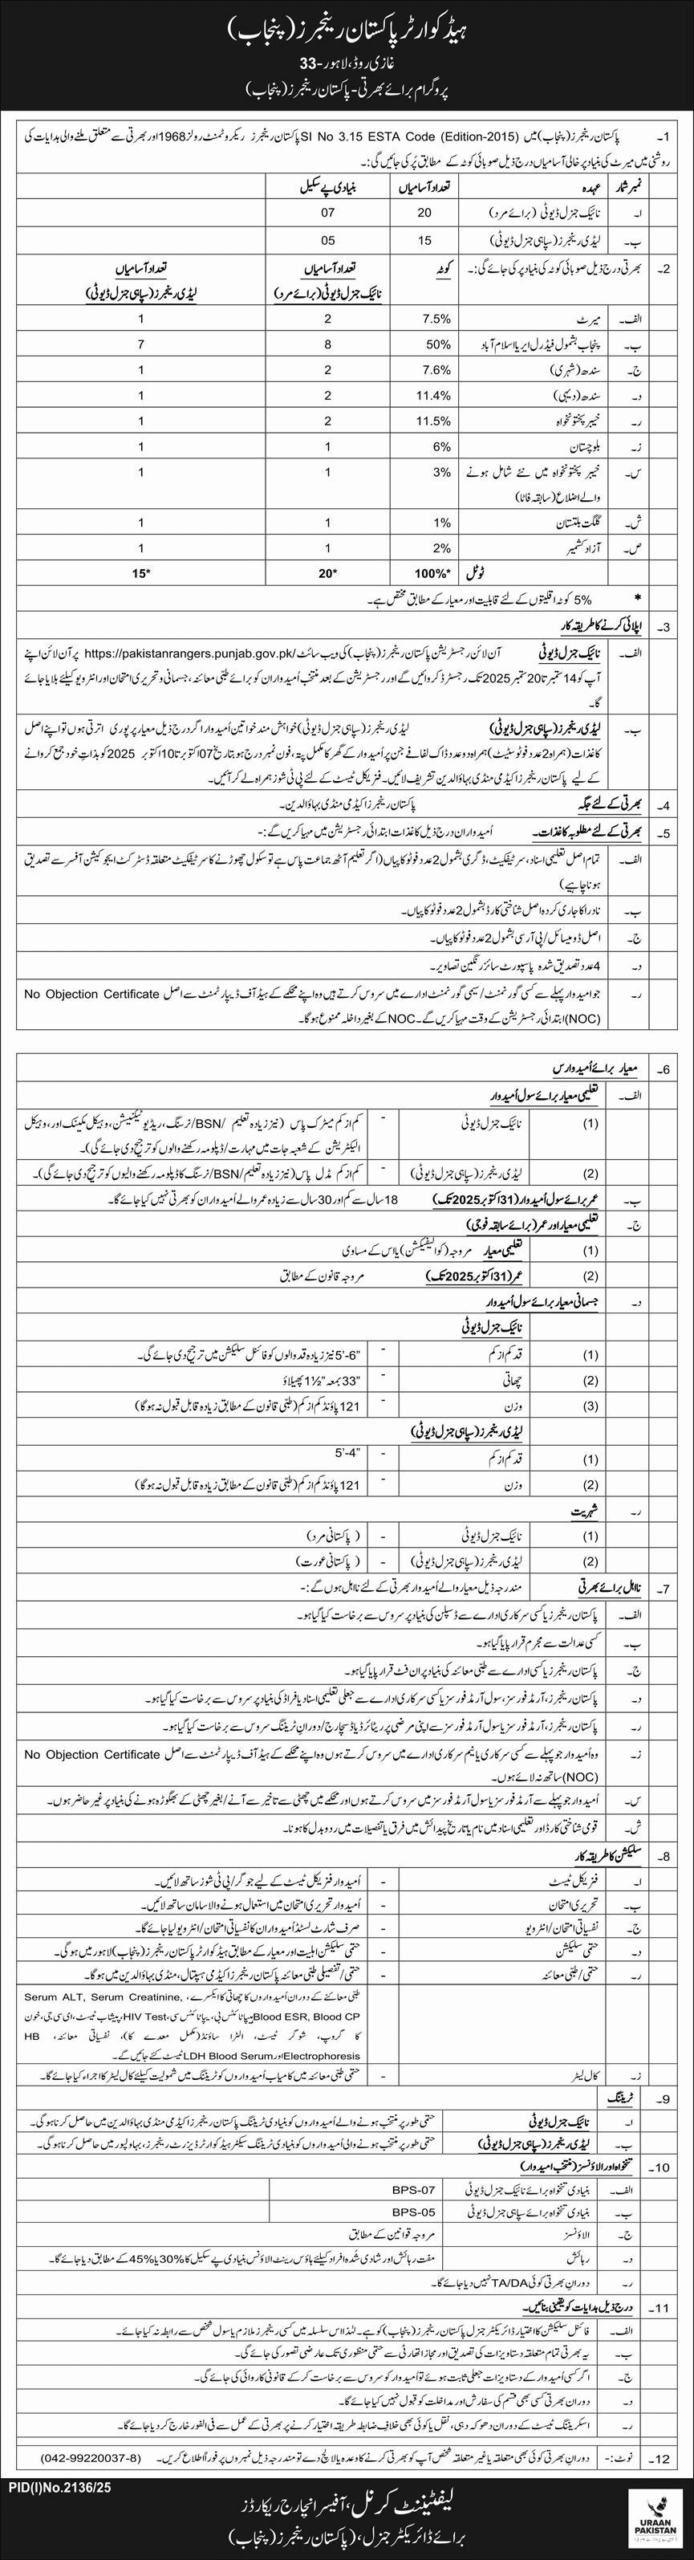 ہیڈکوارٹر پاکستان رینجرز (پنجاب)
غازی روڈ، لاہور-33
پروگرام برائے بھرتی-پاکستان رینجرز (پنجاب)
1۔ پاکستان رینجرز (پنجاب) میں SI No 3.15 ESTA Code (Edition-2015) پاکستان رینجرز ریکروٹمنٹ رولز 1968 اور بھرتی سے متعلق ملنے والی ہدایات کی
روشنی میں میرٹ کی بنیاد پر خالی آسامیاں درج ذیل صوبائی کوٹہ کے مطابق پُر کی جائیں گی:۔
نمبر شمار عہدہ تعداد آسامیاں بنیادی پے سکیل
ا۔ نائیک جنرل ڈیوٹی (برائے مرد) 20 07
ب۔ لیڈی رینجرز (سپاہی جنرل ڈیوٹی) 15 05
2۔ بھرتی درج ذیل صوبائی کوٹہ کی بنیاد پر کی جائے گی:۔ کوٹہ تعداد آسامیاں تعداد آسامیاں
نائیک جنرل ڈیوٹی (برائے مرد) لیڈی رینجرز (سپاہی جنرل ڈیوٹی)
الف۔ میرٹ 7.5% 2 1
ب۔ پنجاب بشمول فیڈرل ایریا اسلام آباد 50% 8 7
ج۔ سندھ (شہری) 7.6% 2 1
د۔ سندھ (دیہی) 11.4% 2 1
ر۔ خیبر پختونخواہ 11.5% 2 1
ز۔ بلوچستان 6% 1 1
س۔ خیبر پختونخواہ میں نئے شامل ہونے 3% 1 1
والے اضلاع (سابقہ فاٹا)
ش۔ گلگت بلتستان 1% 1 1
ص۔ آزاد کشمیر 2% 1 1
ٹوٹل 100%* 20* 15*
* 5% کوٹہ اقلیتوں کے لئے قابلیت اور معیار کے مطابق مختص ہے۔
3۔ اپلائی کرنے کا طریقہ کار
الف۔ نائیک جنرل ڈیوٹی آن لائن رجسٹریشن پاکستان رینجرز (پنجاب) کی ویب سائٹ https://pakistanrangers.punjab.gov.pk/ پر آن لائن اپنے
آپ کو 14 ستمبر تا 20 ستمبر 2025 تک رجسٹرڈ کروائیں گے اور رجسٹریشن کے بعد منتخب اُمیدواران کو برائے طبی معائنہ، جسمانی و تحریری امتحان اور انٹرویو کیلئے بلایا جائے
گا۔
ب۔ لیڈی رینجرز (سپاہی جنرل ڈیوٹی) لیڈی رینجرز (سپاہی جنرل ڈیوٹی) خواہش مند خواتین اُمیدوار اگر درج ذیل معیار پر پوری اترتی ہوں تو اپنے اصل
کاغذات (ہمراہ 2 عدد فوٹو سٹیٹ) ہمراہ دو عدد ڈاک لفافے جن پر اُمیدوار کے گھر کا مکمل پتہ، فون نمبر درج ہو بتاریخ 07 اکتوبر تا 10 اکتوبر 2025 کو بذاتِ خود جمع کروانے
کے لیے پاکستان رینجرز اکیڈمی منڈی بہاؤالدین تشریف لائیں۔ فزیکل ٹیسٹ کے لئے پی ٹی شوز ہمراہ لے کر آئیں۔
4۔ بھرتی کے لئے جگہ پاکستان رینجرز اکیڈمی منڈی بہاؤالدین۔
5۔ بھرتی کے لئے مطلوبہ کاغذات۔ اُمیدواران درج ذیل کاغذات ابتدائی رجسٹریشن میں مہیا کریں گے:-
الف۔ تمام اصل تعلیمی اسناد، سرٹیفکیٹ، ڈگری بشمول 2 عدد فوٹو کاپیاں (اگر تعلیم آٹھ جماعت پاس ہے تو سکول چھوڑنے کا سرٹیفکیٹ متعلقہ ڈسٹرکٹ ایجوکیشن آفسر سے تصدیق
ہونا چاہیے)
ب۔ نادرا کا جاری کردہ اصل شناختی کارڈ بشمول 2 عدد فوٹو کاپیاں۔
ج۔ اصل ڈومیسائل/پی آر سی بشمول 2 عدد فوٹو کاپیاں۔
د۔ 4 عدد تصدیق شدہ پاسپورٹ سائز رنگین تصاویر۔
ر۔ جو امیدوار پہلے سے کسی گورنمنٹ/سیمی گورنمنٹ ادارے میں سروس کرتے ہیں وہ اپنے محکمے کے ہیڈ آف ڈیپارٹمنٹ سے اصل No Objection Certificate
(NOC) ابتدائی رجسٹریشن کے وقت مہیا کریں گے۔ NOC کے بغیر داخلہ ممنوع ہوگا۔
6۔ معیار برائے اُمیدوارس
الف۔ تعلیمی معیار برائے سول اُمیدوار
(1) نائیک جنرل ڈیوٹی - کم از کم میٹرک پاس (نیز زیادہ تعلیم /BSN/نرسنگ، ریڈیو ٹیکنیشن، وہیکل مکینک اور، وہیکل
الیکٹریشن کے شعبہ جات میں مہارت/ڈپلومہ رکھنے والوں کو ترجیح دی جائے گی)۔
(2) لیڈی رینجرز (سپاہی جنرل ڈیوٹی) - کم از کم مڈل پاس (نیز زیادہ تعلیم/BSN/نرسنگ کا ڈپلومہ رکھنے والیوں کو ترجیح دی جائے گی)۔
ب۔ عمر برائے سول اُمیدوار (31 اکتوبر 2025 تک) 18 سال سے کم اور 30 سال سے زیادہ عمر والے اُمیدواران کو بھرتی نہیں کیا جائے گا۔
ج۔ تعلیمی معیار اور عمر (برائے سابقہ فوجی)
(1) تعلیمی معیار مروجہ (کوالیفکیشن) یا اس کے مساوی
(2) عمر (31 اکتوبر 2025 تک) مروجہ قانون کے مطابق
د۔ جسمانی معیار برائے سول اُمیدوار
نائیک جنرل ڈیوٹی
(1) قد کم از کم - 5'-6" نیز زیادہ قد والوں کو فائنل سلیکشن میں ترجیح دی جائے گی۔
(2) چھاتی - 33" بمعہ 1½" پھیلاؤ
(3) وزن - 121 پاؤنڈ کم از کم (طبی قانون کے مطابق زیادہ قابل قبول نہ ہوگا)
لیڈی رینجرز (سپاہی جنرل ڈیوٹی)
(1) قد کم از کم - 5'-4"
(2) وزن - 121 پاؤنڈ کم از کم (طبی قانون کے مطابق زیادہ قابل قبول نہ ہوگا)
ر۔ شہریت
(1) نائیک جنرل ڈیوٹی - (پاکستانی مرد)
(2) لیڈی رینجرز (سپاہی جنرل ڈیوٹی) - (پاکستانی عورت)
7۔ نااہل برائے بھرتی مندرجہ ذیل معیار والے اُمیدوار بھرتی کے لئے نااہل ہوں گے:-
الف۔ پاکستان رینجرز یا کسی سرکاری ادارے سے ڈسپلن کی بنیاد پر سروس سے برخاست کیا گیا ہو۔
ب۔ کسی عدالت سے مجرم قرار پایا گیا ہو۔
ج۔ پاکستان رینجرز یا کسی ادارے سے طبی معائنہ کی بنیاد پر ان فٹ قرار پایا گیا ہو۔
د۔ پاکستان رینجرز، آرمڈ فورسز، سول آرمڈ فورسز یا کسی سرکاری ادارے سے جعلی تعلیمی اسناد یا فراڈ کی بنیاد پر سروس سے برخاست کیا گیا ہو۔
ر۔ پاکستان رینجرز، آرمڈ فورسز یا سول آرمڈ فورسز سے اپنی مرضی پر ریٹائرڈ یا ڈسچارج/دوران ٹریننگ سروس سے برخاست کیا گیا ہو۔
ز۔ وہ اُمیدوار جو پہلے سے کسی سرکاری یا نیم سرکاری ادارے میں سروس کرتے ہوں وہ اپنے محکمے کے ہیڈ آف ڈیپارٹمنٹ سے اصل No Objection Certificate
(NOC) ساتھ نہ لائے ہوں۔
س۔ اُمیدوار جو پہلے سے آرمڈ فورسز یا سول آرمڈ فورسز میں سروس کرتے ہوں اور محکمے میں چھٹی سے تاخیر سے آنے/بغیر چھٹی کے بھگوڑہ ہونے کی بنیاد پر غیر حاضر ہوں۔
ش۔ قومی شناختی کارڈ اور تعلیمی اسناد میں نام یا تاریخ پیدائش میں فرق یا تفصیلات میں ردوبدل کا ہونا۔
8۔ سلیکشن کا طریقہ کار
ا۔ فزیکل ٹیسٹ - اُمیدوار فزیکل ٹیسٹ کے لیے جوگر/پی ٹی شوز ساتھ لائیں۔
ب۔ تحریری امتحان - اُمیدوار تحریری امتحان میں استعمال ہونے والا سامان ساتھ لائیں۔
ج۔ نفسیاتی امتحان/انٹرویو - صرف شارٹ لسٹڈ اُمیدواران کا نفسیاتی امتحان/انٹرویو لیا جائے گا۔
د۔ حتمی سلیکشن - حتمی سلیکشن اہلیت اور معیار کے مطابق ہیڈکوارٹر پاکستان رینجرز (پنجاب) لاہور میں ہوگی۔
ر۔ حتمی/طبی معائنہ - حتمی/تفصیلی طبی معائنہ پاکستان رینجرز اکیڈمی ہسپتال، منڈی بہاؤالدین میں ہوگا۔
طبی معائنے کے دوران اُمیدواروں کا چھاتی کا ایکسرے، Serum ALT, Serum Creatinine,
Blood ESR, Blood CP، ہیپاٹائٹس بی، ہیپاٹائٹس سی، HIV Test، پیشاب ٹیسٹ، ای سی جی، خون
کا گروپ، شوگر ٹیسٹ، الٹرا ساؤنڈ (مکمل معدے کا)، نفسیاتی معائنہ، HB
Electrophoresis اور LDH Blood Serum ٹیسٹ کئے جائیں گے۔
ز۔ کال لیٹر - حتمی طبی معائنہ میں کامیاب اُمیدواروں کو ٹریننگ میں شمولیت کیلئے کال لیٹر کا اجراء کیا جائے گا۔
9۔ ٹریننگ
ا۔ نائیک جنرل ڈیوٹی حتمی طور پر منتخب ہونے والے اُمیدواروں کو بنیادی ٹریننگ پاکستان رینجرز اکیڈمی منڈی بہاؤالدین میں حاصل کرنا ہوگی۔
ب۔ لیڈی رینجرز (سپاہی جنرل ڈیوٹی) حتمی طور پر منتخب ہونے والی اُمیدواروں کو بنیادی ٹریننگ سیکٹر ہیڈکوارٹر ڈیزرٹ رینجرز، بہاولپور میں حاصل کرنا ہوگی۔
10۔ تنخواہ اور الاؤنسز (منتخب امیدوار)
الف۔ بنیادی تنخواہ برائے نائیک جنرل ڈیوٹی BPS-07
ب۔ بنیادی تنخواہ برائے سپاہی جنرل ڈیوٹی BPS-05
ج۔ الاؤنسز مروجہ قوانین کے مطابق
د۔ رہائش مفت رہائش اور شادی شدہ افراد کیلئے ہاؤس رینٹ الاؤنس بنیادی پے سکیل کا 30% یا 45% کے مطابق دیا جائے گا۔
ر۔ دوران بھرتی کوئی TA/DA نہیں دیا جائے گا۔
11۔ درج ذیل ہدایات کو یقینی بنائیں۔
الف۔ فائنل سلیکشن کا اختیار ڈائریکٹر جنرل پاکستان رینجرز (پنجاب) کو ہے۔ لہٰذا اس سلسلہ میں کسی رینجرز ملازم یا سول شخص سے رابطہ نہ کیا جائے۔
ب۔ یہ بھرتی تمام متعلقہ دستاویزات کی تصدیق اور مجاز اتھارٹی سے حتمی منظوری تک عارضی تصور کی جائے گی۔
ج۔ اگر کسی اُمیدوار کے دستاویزات جعلی ثابت ہوئے تو اُمیدوار کو سروس سے برخاست کر کے قانونی کاروائی کی جائے گی۔
د۔ دوران بھرتی کسی بھی قسم کی سفارش اور مداخلت کو قبول نہیں کیا جائے گا۔
ر۔ اسکریننگ ٹیسٹ کے دوران دھوکہ دہی، نقل یا کوئی بھی خلافِ ضابطہ طریقہ اختیار کرنے پر بھرتی کے عمل سے فی الفور خارج کر دیا جائے گا۔
12۔ نوٹ:- دوران بھرتی کوئی بھی متعلقہ یا غیر متعلقہ شخص آپ کو بھرتی کرنے کا وعدہ یا لالچ دے تو مندرجہ ذیل نمبروں پر فوراً اطلاع کریں۔ (042-99220037-8)
PID(I)No.2136/25
لیفٹیننٹ کرنل، آفیسر انچارج ریکارڈز
برائے ڈائریکٹر جنرل، (پاکستان رینجرز (پنجاب)
URAAN
PAKISTAN